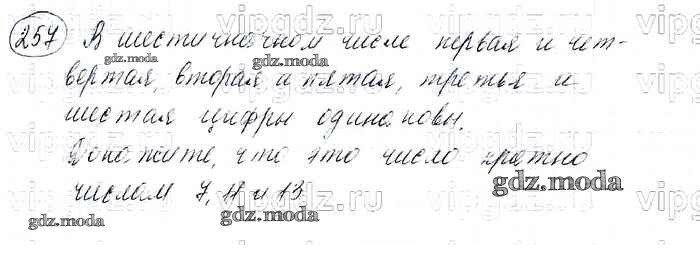 257 В шестизначном числе первая и чет-
вертая, вторая и пятая, третья и
шестая цифры одинаковы.
Докажите, что это число кратно
числам 7, 11 и 13
gdz.moda
gdz.moda
gdz.moda
gdz.moda
gdz.moda
vipgdz.ru
vipgdz.ru
vipgdz.ru